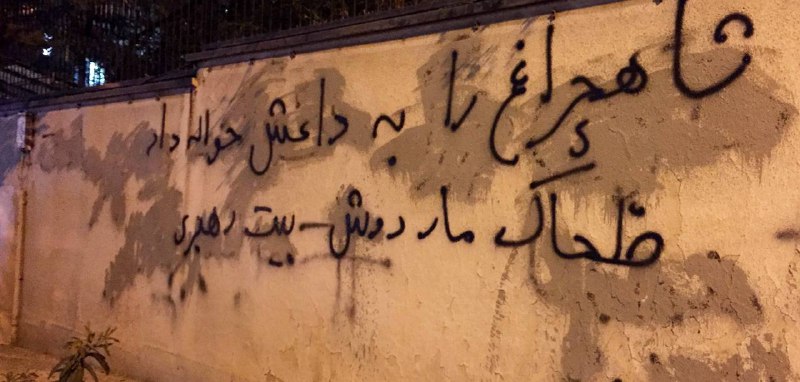 شاهچراغ را به داعش حواله داد
ظحاک ماردوش - بیت رهبری